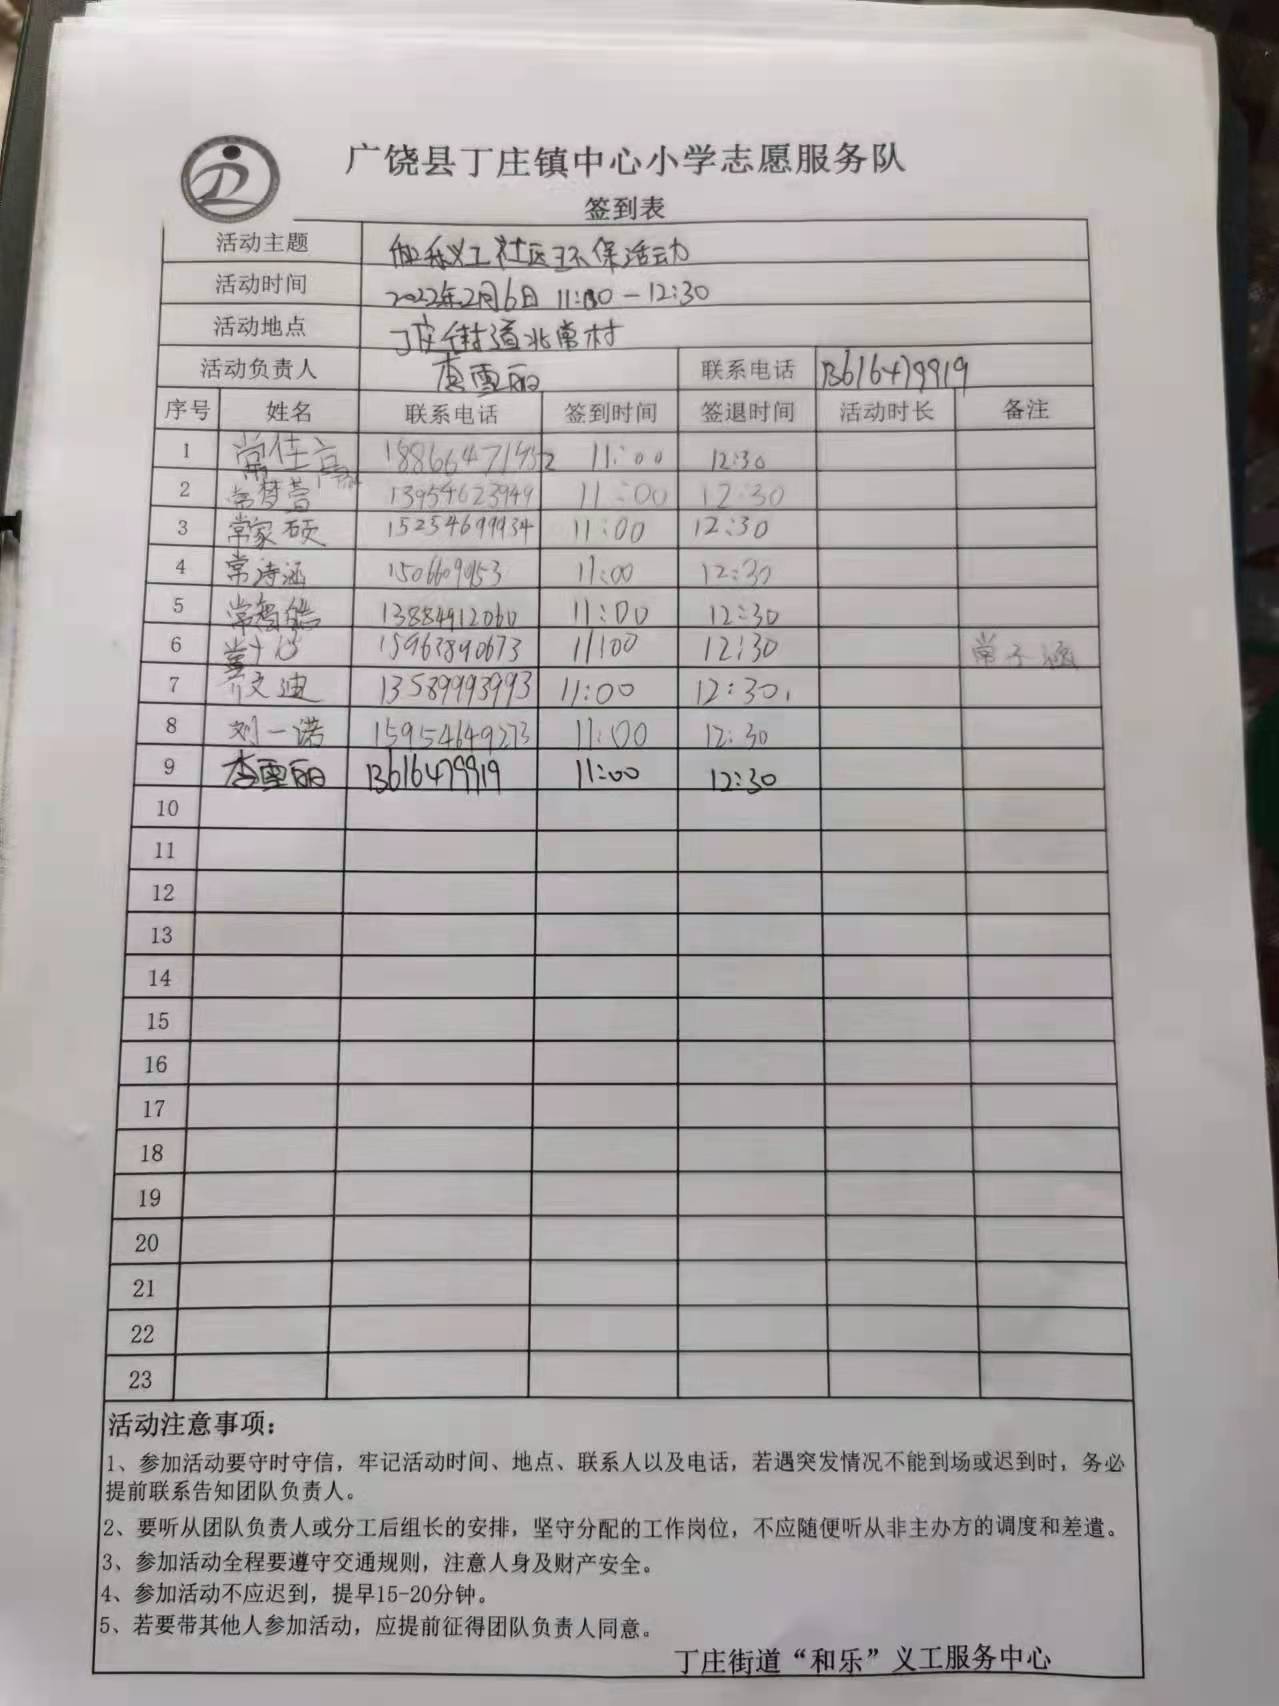 广饶县丁庄镇中心小学志愿服务队
签到表
活动主题 义工社区环保活动
活动时间 2022年2月6日 11:00-12:30
活动地点 丁庄街道北常村
活动负责人 李雪丽 联系电话 13616479919
序号 姓名 联系电话 签到时间 签退时间 活动时长 备注
1 常佳 11:00 12:30
2 常梦萱 13954623949 11:00 12:30
3 常家硕 15254699934 11:00 12:30
4 常诗涵 11:00 12:30
5 常智皓 13884912060 11:00 12:30
6 常子 15963890673 11:00 12:30 常子涵
7 文迪 13589993993 11:00 12:30
8 刘一诺 15954649273 11:00 12:30
9 李雪丽 13616479919 11:00 12:30
10
11
12
13
14
15
16
17
18
19
20
21
22
23
活动注意事项：
1、参加活动要守时守信，牢记活动时间、地点、联系人以及电话，若遇突发情况不能到场或迟到时，务必
提前联系告知团队负责人。
2、要听从团队负责人或分工后组长的安排，坚守分配的工作岗位，不应随便听从非主办方的调度和差遣。
3、参加活动全程要遵守交通规则，注意人身及财产安全。
4、参加活动不应迟到，提早15-20分钟。
5、若要带其他人参加活动，应提前征得团队负责人同意。
丁庄街道“和乐”义工服务中心